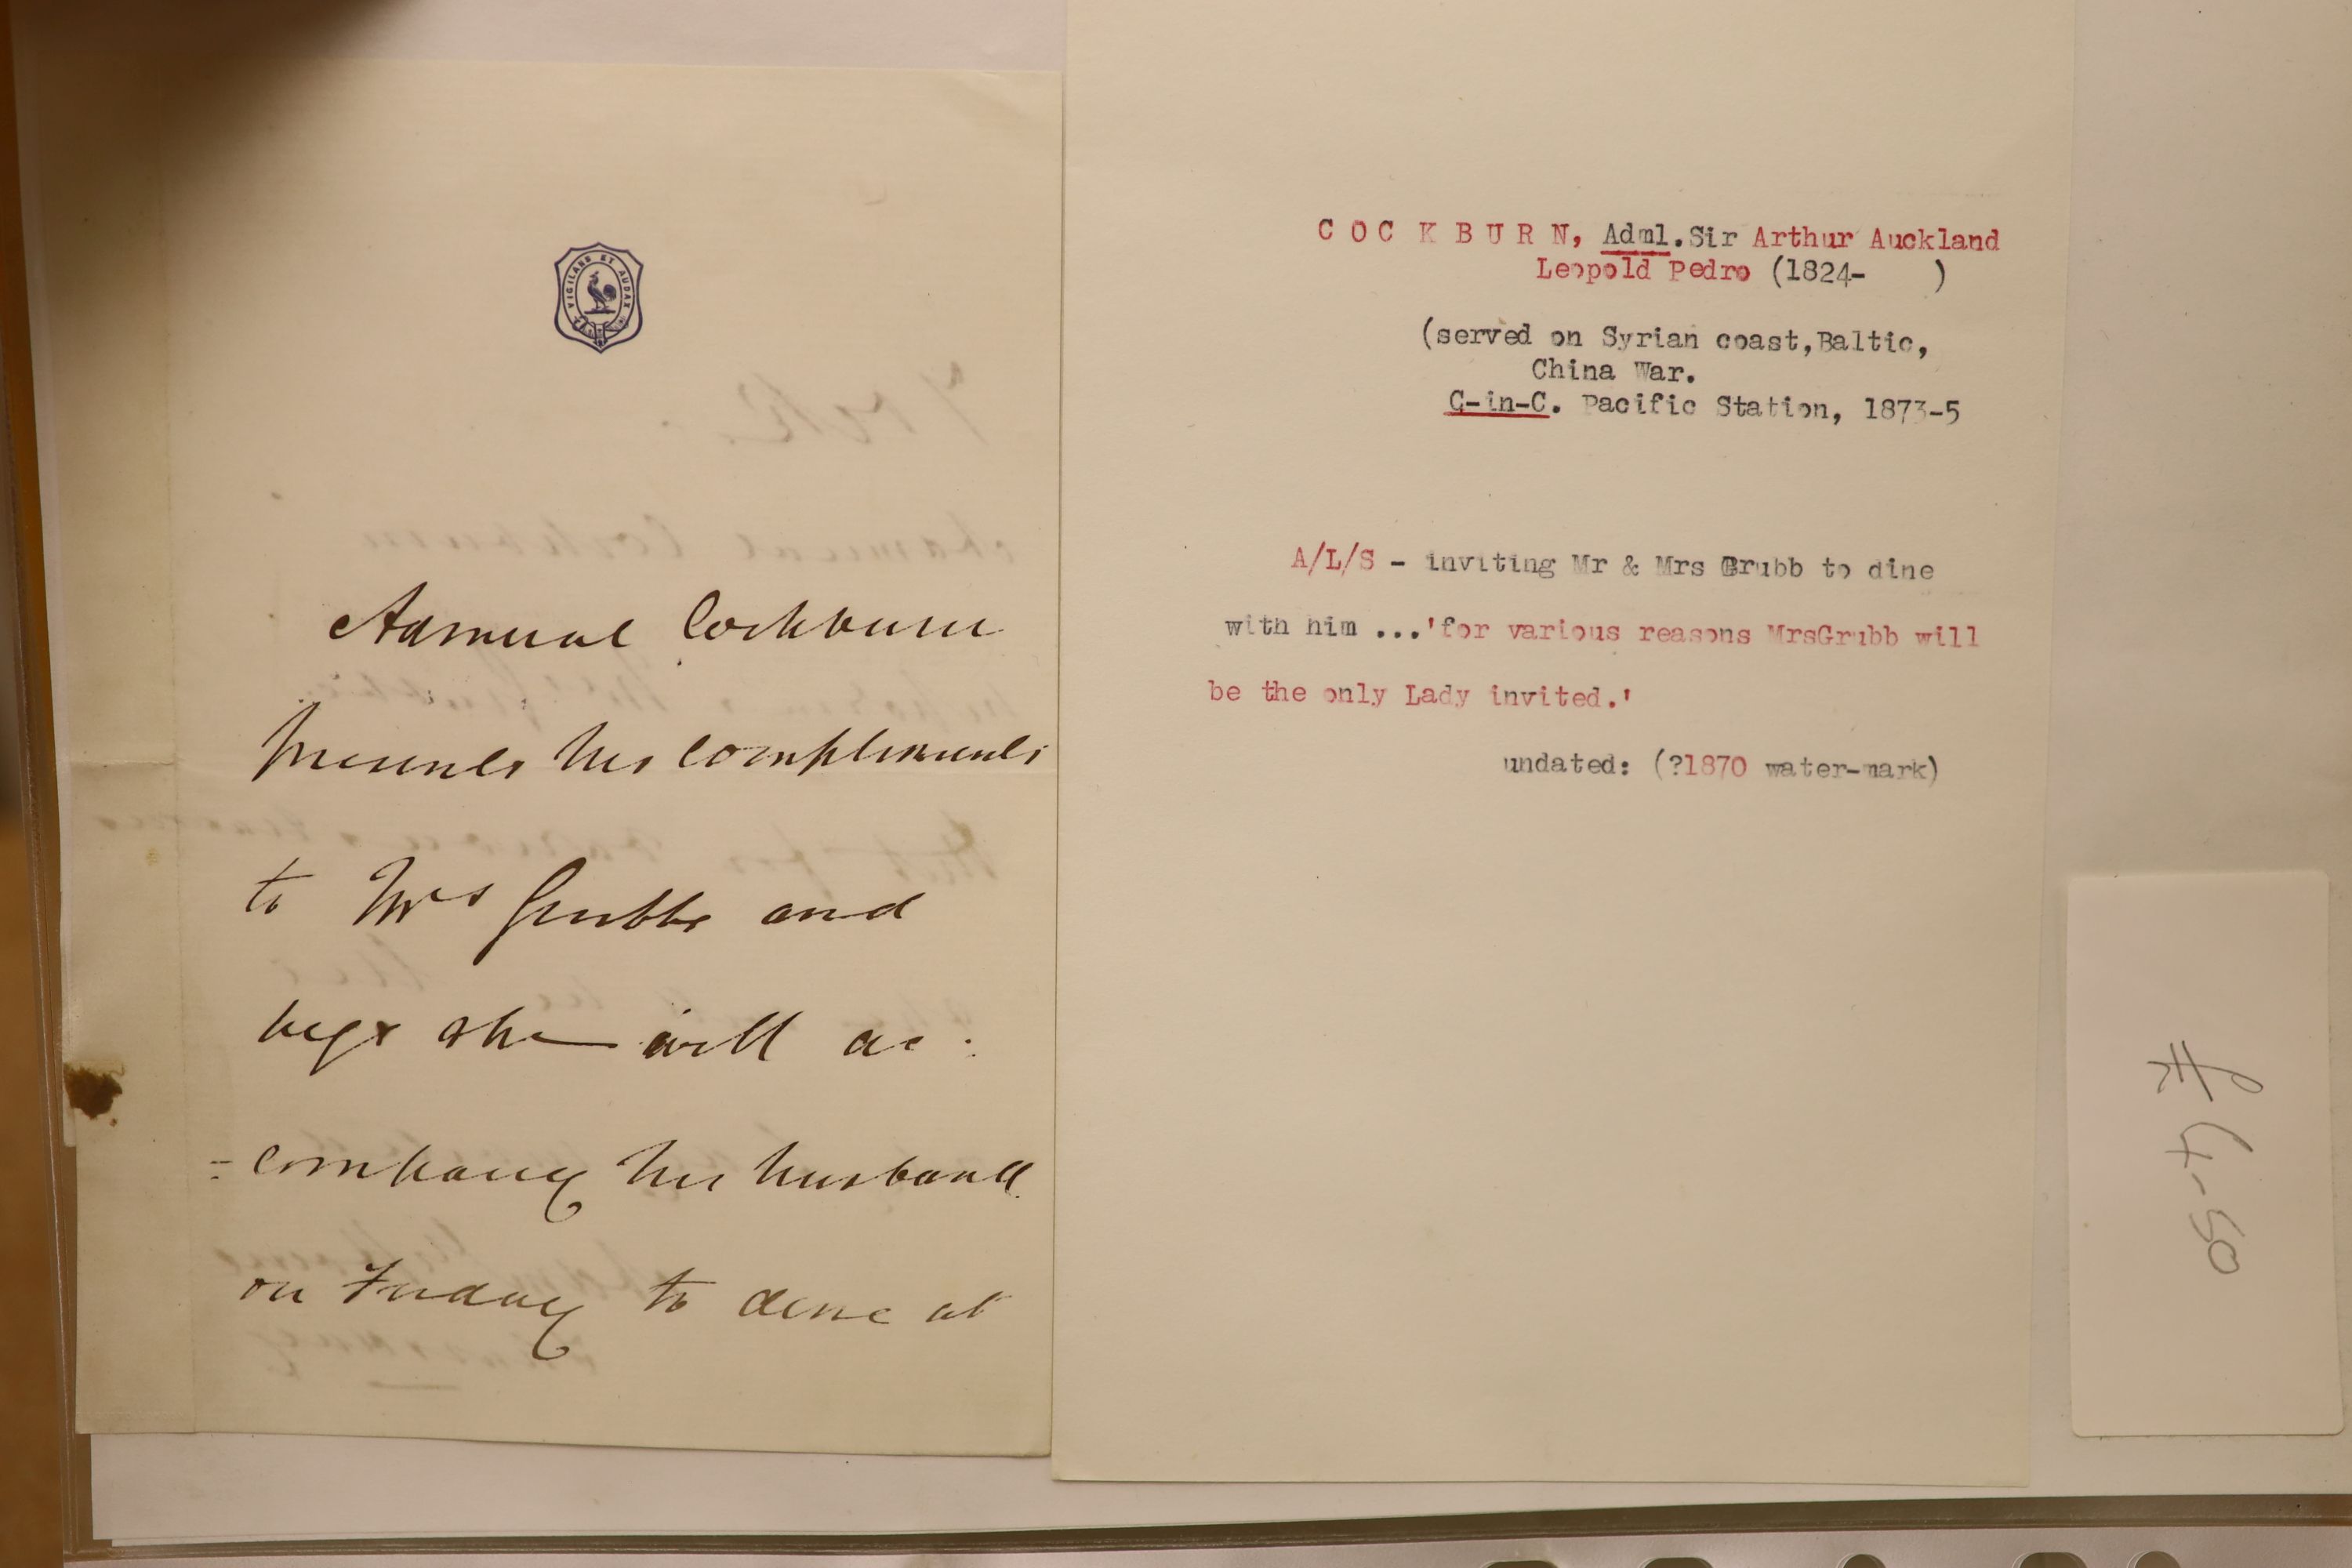 VIGILANS ET AUDAX
Admiral Cockburn
presents his compliments
to Mrs Grubbe and
begs she will ac:
=company her husband
on Friday to dine at
C O C K B U R N, Adml.Sir Arthur Auckland
Leopold Pedro (1824- )
(served on Syrian coast,Baltic,
China War.
C-in-C. Pacific Station, 1873-5
A/L/S - inviting Mr & Mrs Grubb to dine
with him ...'for various reasons MrsGrubb will
be the only Lady invited.'
undated: (?1870 water-mark)
£4-50